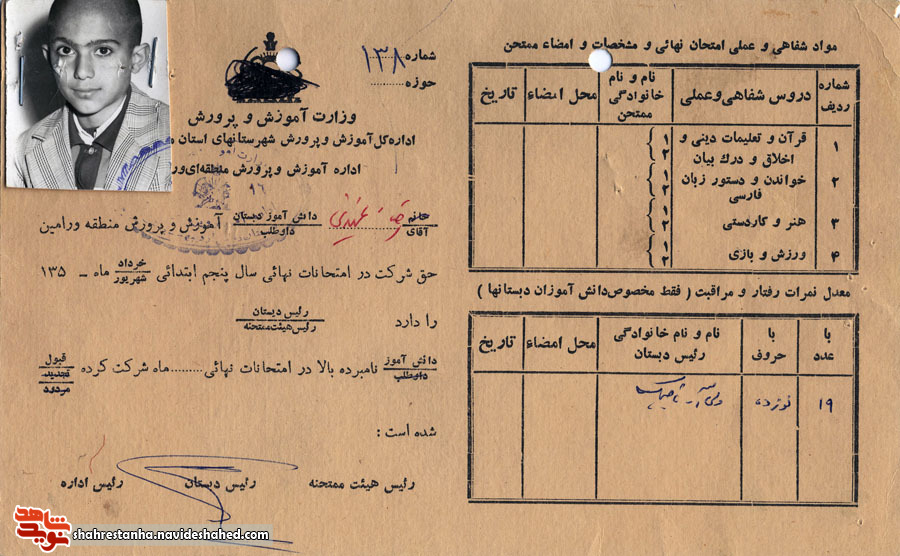 شماره ۱۳۸
حوزه
وزارت آموزش و پرورش
اداره کل آموزش و پرورش شهرستانهای استان
اداره آموزش و پرورش منطقه‌ای
خانم
آقای
دانش آموز دبستان
داوطلب
آموزش و پرورش منطقه ورامین
حق شرکت در امتحانات نهائی سال پنجم ابتدائی خرداد
شهریور
ماه ـ ۱۳۵
را دارد
رئیس دبستان
رئیس هیئت ممتحنه
دانش آموز
داوطلب
نامبرده بالا در امتحانات نهائی.........ماه شرکت کرده
قبول
تجدید
مردود
شده است :
رئیس هیئت ممتحنه رئیس دبستان رئیس اداره
مواد شفاهی و عملی امتحان نهائی و مشخصات و امضاء ممتحن
شماره ردیف دروس شفاهی و عملی نام و نام خانوادگی ممتحن محل امضاء تاریخ
۱ قرآن و تعلیمات دینی و ۱
اخلاق و درك بیان ۲
۲ خواندن و دستور زبان ۱
فارسی ۲
۳ هنر و کاردستی ۱
۲
۴ ورزش و بازی ۱
۲
معدل نمرات رفتار و مراقبت ( فقط مخصوص دانش آموزان دبستانها )
با عدد با حروف نام و نام خانوادگی رئیس دبستان محل امضاء تاریخ
۱۹ نوزده
نوید شاهد
shahrestanha.navideshahed.com